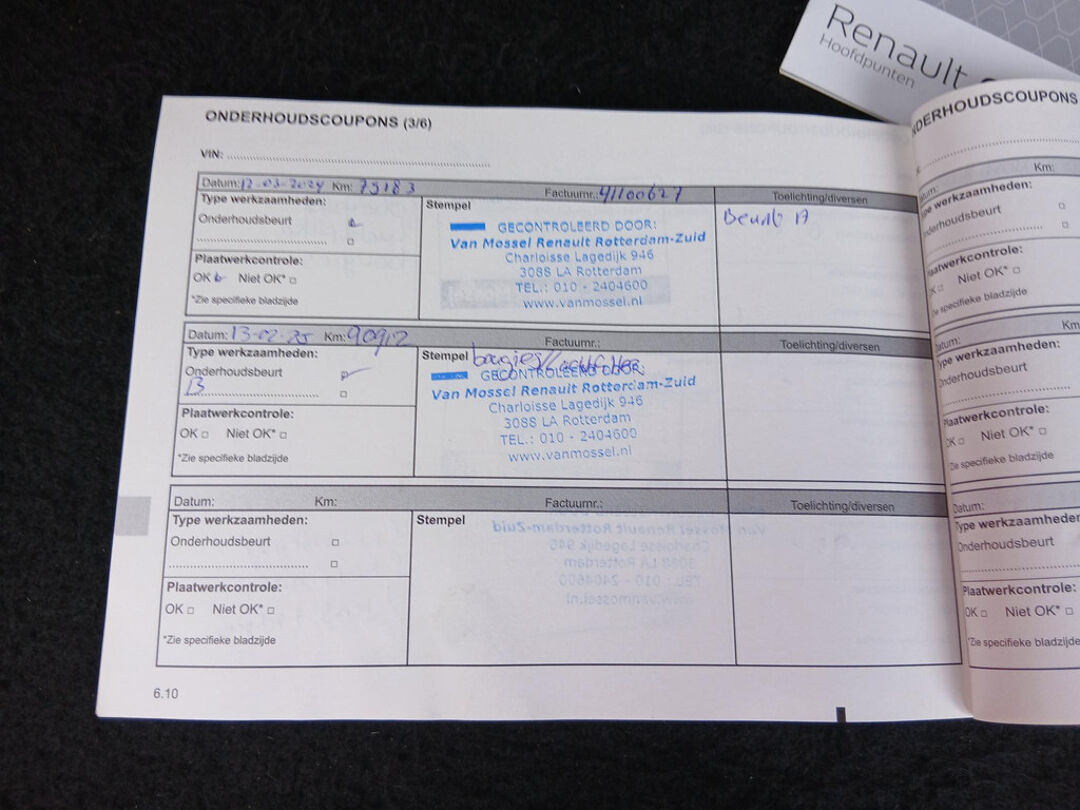 Renault
Hoofdpunten
ONDERHOUDSCOUPONS (3/6)
VIN:
Datum: 12-03-2024 Km: 75183 Factuurnr.: 41100627 Toelichting/diversen
Type werkzaamheden:
Onderhoudsbeurt
Plaatwerkcontrole:
OK Niet OK*
*Zie specifieke bladzijde
Stempel
GECONTROLEERD DOOR:
Van Mossel Renault Rotterdam-Zuid
Charloisse Lagedijk 946
3088 LA Rotterdam
TEL.: 010 - 2404600
www.vanmossel.nl
Beurt A
Datum: 13-02-25 Km: 90912 Factuurnr.: Toelichting/diversen
Type werkzaamheden:
Onderhoudsbeurt
B
Plaatwerkcontrole:
OK Niet OK*
*Zie specifieke bladzijde
Stempel bougies
GECONTROLEERD DOOR:
Van Mossel Renault Rotterdam-Zuid
Charloisse Lagedijk 946
3088 LA Rotterdam
TEL.: 010 - 2404600
www.vanmossel.nl
Datum: Km: Factuurnr.: Toelichting/diversen
Type werkzaamheden:
Onderhoudsbeurt
Plaatwerkcontrole:
OK Niet OK*
*Zie specifieke bladzijde
Stempel
6.10
NDERHOUDSCOUPONS
Km:
atum:
pe werkzaamheden:
nderhoudsbeurt
aatwerkcontrole:
K Niet OK*
ie specifieke bladzijde
Km
atum:
Type werkzaamheden:
Onderhoudsbeurt
Plaatwerkcontrole:
OK Niet OK*
Zie specifieke bladzijde
Datum:
Type werkzaamheden
Onderhoudsbeurt
Plaatwerkcontrole:
OK Niet OK*
*Zie specifieke bladzijde